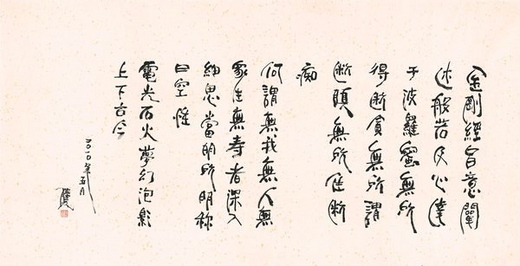 金剛經旨意闡
述般若及心達
于波羅蜜無所
得斷貪無所謂
斷無所住斷
痴
何謂無我無人無
眾生無壽者深入
細思當明所明稱
曰空惟
電光石火夢幻泡影
上下古今
二〇一〇年五月